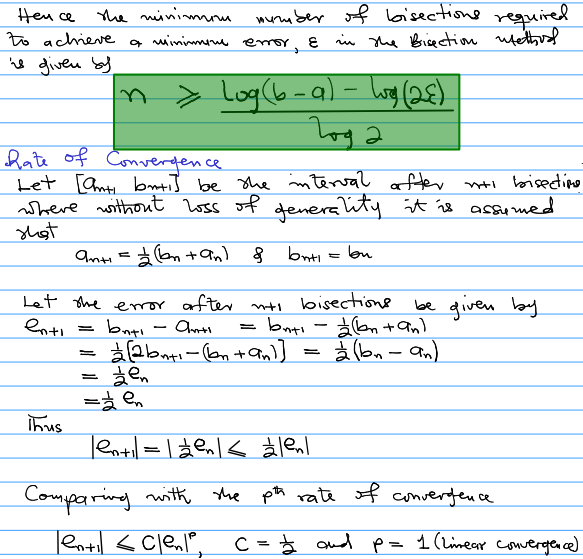 Hence the minimum number of bisections required
to achieve a minimum error, ε in the Bisection method
is given by
n ≥ (log(b-a) - log(2ε)) / log 2
Rate of Convergence
Let [aₙ₊₁ bₙ₊₁] be the interval after n+1 bisections
where without loss of generality it is assumed
that
aₙ₊₁ = ½(bₙ + aₙ) & bₙ₊₁ = bₙ
Let the error after n+1 bisections be given by
eₙ₊₁ = bₙ₊₁ - aₙ₊₁ = bₙ₊₁ - ½(bₙ + aₙ)
= ½[2bₙ₊₁ - (bₙ + aₙ)] = ½(bₙ - aₙ)
= ½eₙ
= ½ eₙ
Thus
|eₙ₊₁| = |½eₙ| ≤ ½|eₙ|
Comparing with the pᵗʰ rate of convergence
|eₙ₊₁| ≤ C|eₙ|ᵖ, C = ½ and p = 1 (Linear convergence)